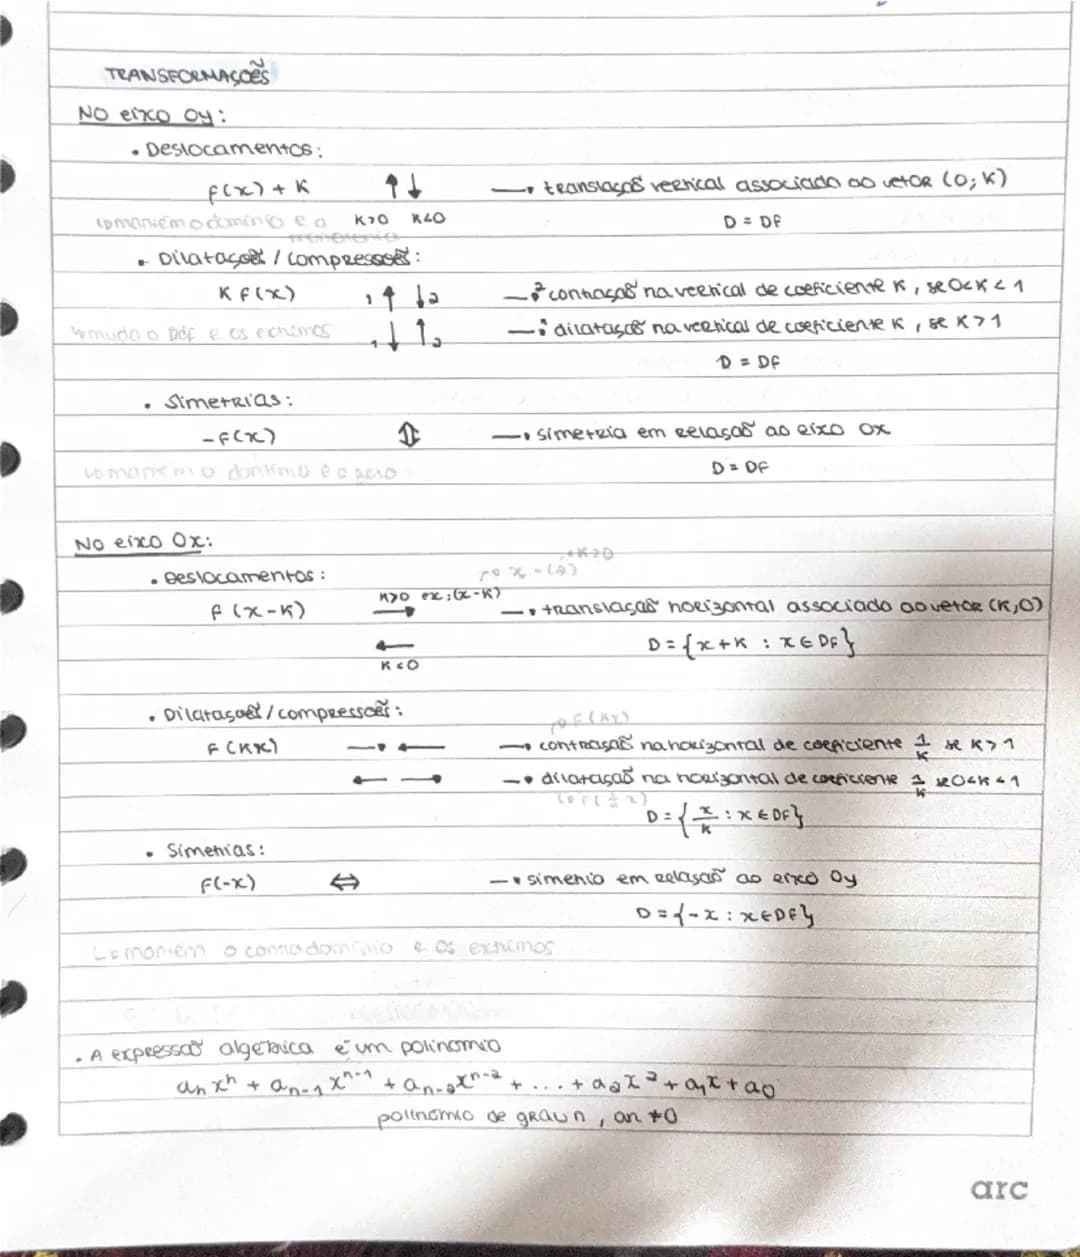 TRANSFORMAÇÕES
No eixo Oy:
• Deslocamentos:
f(x) + K ↑↓ → translação vertical associado ao vetor (0; K)
↳ mantém o domínio e a monotonia K>0 K<0 D = Df
• Dilatações / compressões:
K f(x) 1 ↑ ↓ 2 → 2 contração na vertical de coeficiente K, se 0<K<1
↳ muda o Ddf e os extremos 1 ↓ ↑ 2 → 1 dilatação na vertical de coeficiente K, se K>1
D = Df
• Simetrias:
-f(x) ⇕ → simetria em relação ao eixo Ox
↳ mantém o domínio e o zero D = Df
No eixo Ox:
→ K>0
↱ x-(2)
• Deslocamentos:
f(x-K) K>0 ex:(x-K) → → translação horizontal associado ao vetor (K,0)
← K<0 D = {x+K : x ∈ Df}
• Dilatações / compressões:
↱ f(Kx)
f(Kx) → ← → contração na horizontal de coeficiente 1/K se K>1
← → → dilatação na horizontal de coeficiente 1/K se 0<K<1
↳ f(1/2 x)
D = {x/K : x ∈ Df}
• Simetrias:
f(-x) ⇔ → simetria em relação ao eixo Oy
D = {-x : x ∈ Df}
↳ mantém o contradomínio e os extremos
• A expressão algébrica é um polinómio
aₙxⁿ + aₙ₋₁xⁿ⁻¹ + aₙ₋₂xⁿ⁻² + ... + a₂x² + a₁x + a₀
polinómio de grau n, an ≠0
arc